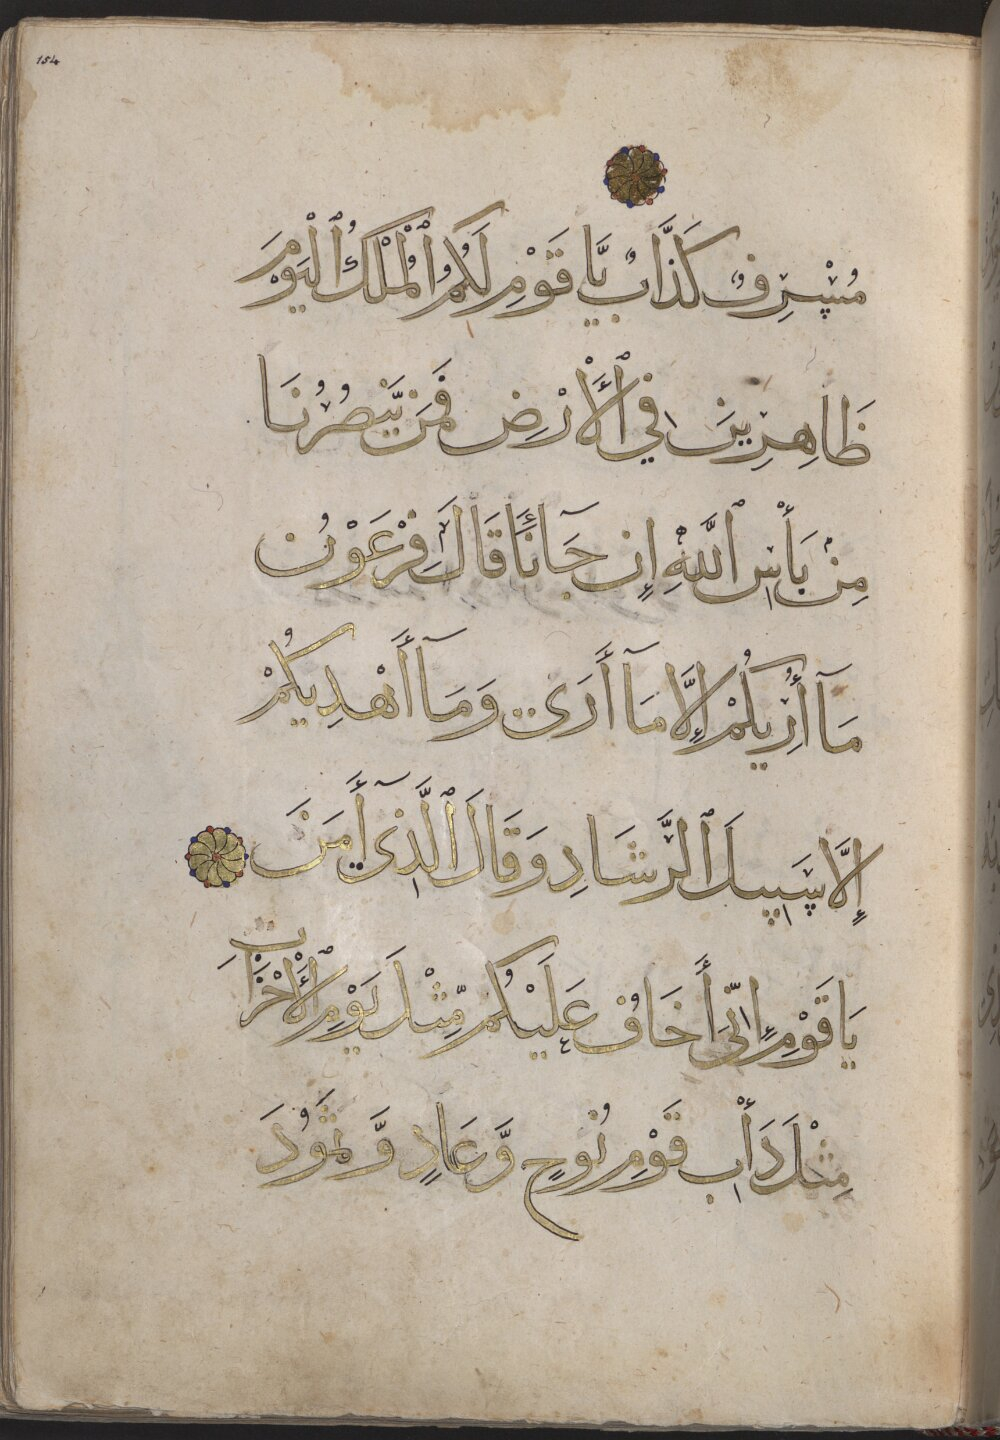 154
مُسْرِفٌ كَذَّابٌ يَا قَوْمِ لَكُمُ ٱلْمُلْكُ ٱلْيَوْمَ
ظَاهِرِينَ فِي ٱلْأَرْضِ فَمَن يَّنصُرُنَا
مِنْ بَأْسِ ٱللَّهِ إِن جَآءَنَا قَالَ فِرْعَوْنُ
مَآ أُرِيكُمْ إِلَّا مَآ أَرَىٰ وَمَآ أَهْدِيكُمْ
إِلَّا سَبِيلَ ٱلرَّشَادِ وَقَالَ ٱلَّذِىٓ أٰمَنَ
يَا قَوْمِ إِنِّىٓ أَخَافُ عَلَيْكُم مِّثْلَ يَوْمِ ٱلْأَحْزَابِ
مِثْلَ دَأْبِ قَوْمِ نُوحٍ وَّعَادٍ وَّثَمُودَ